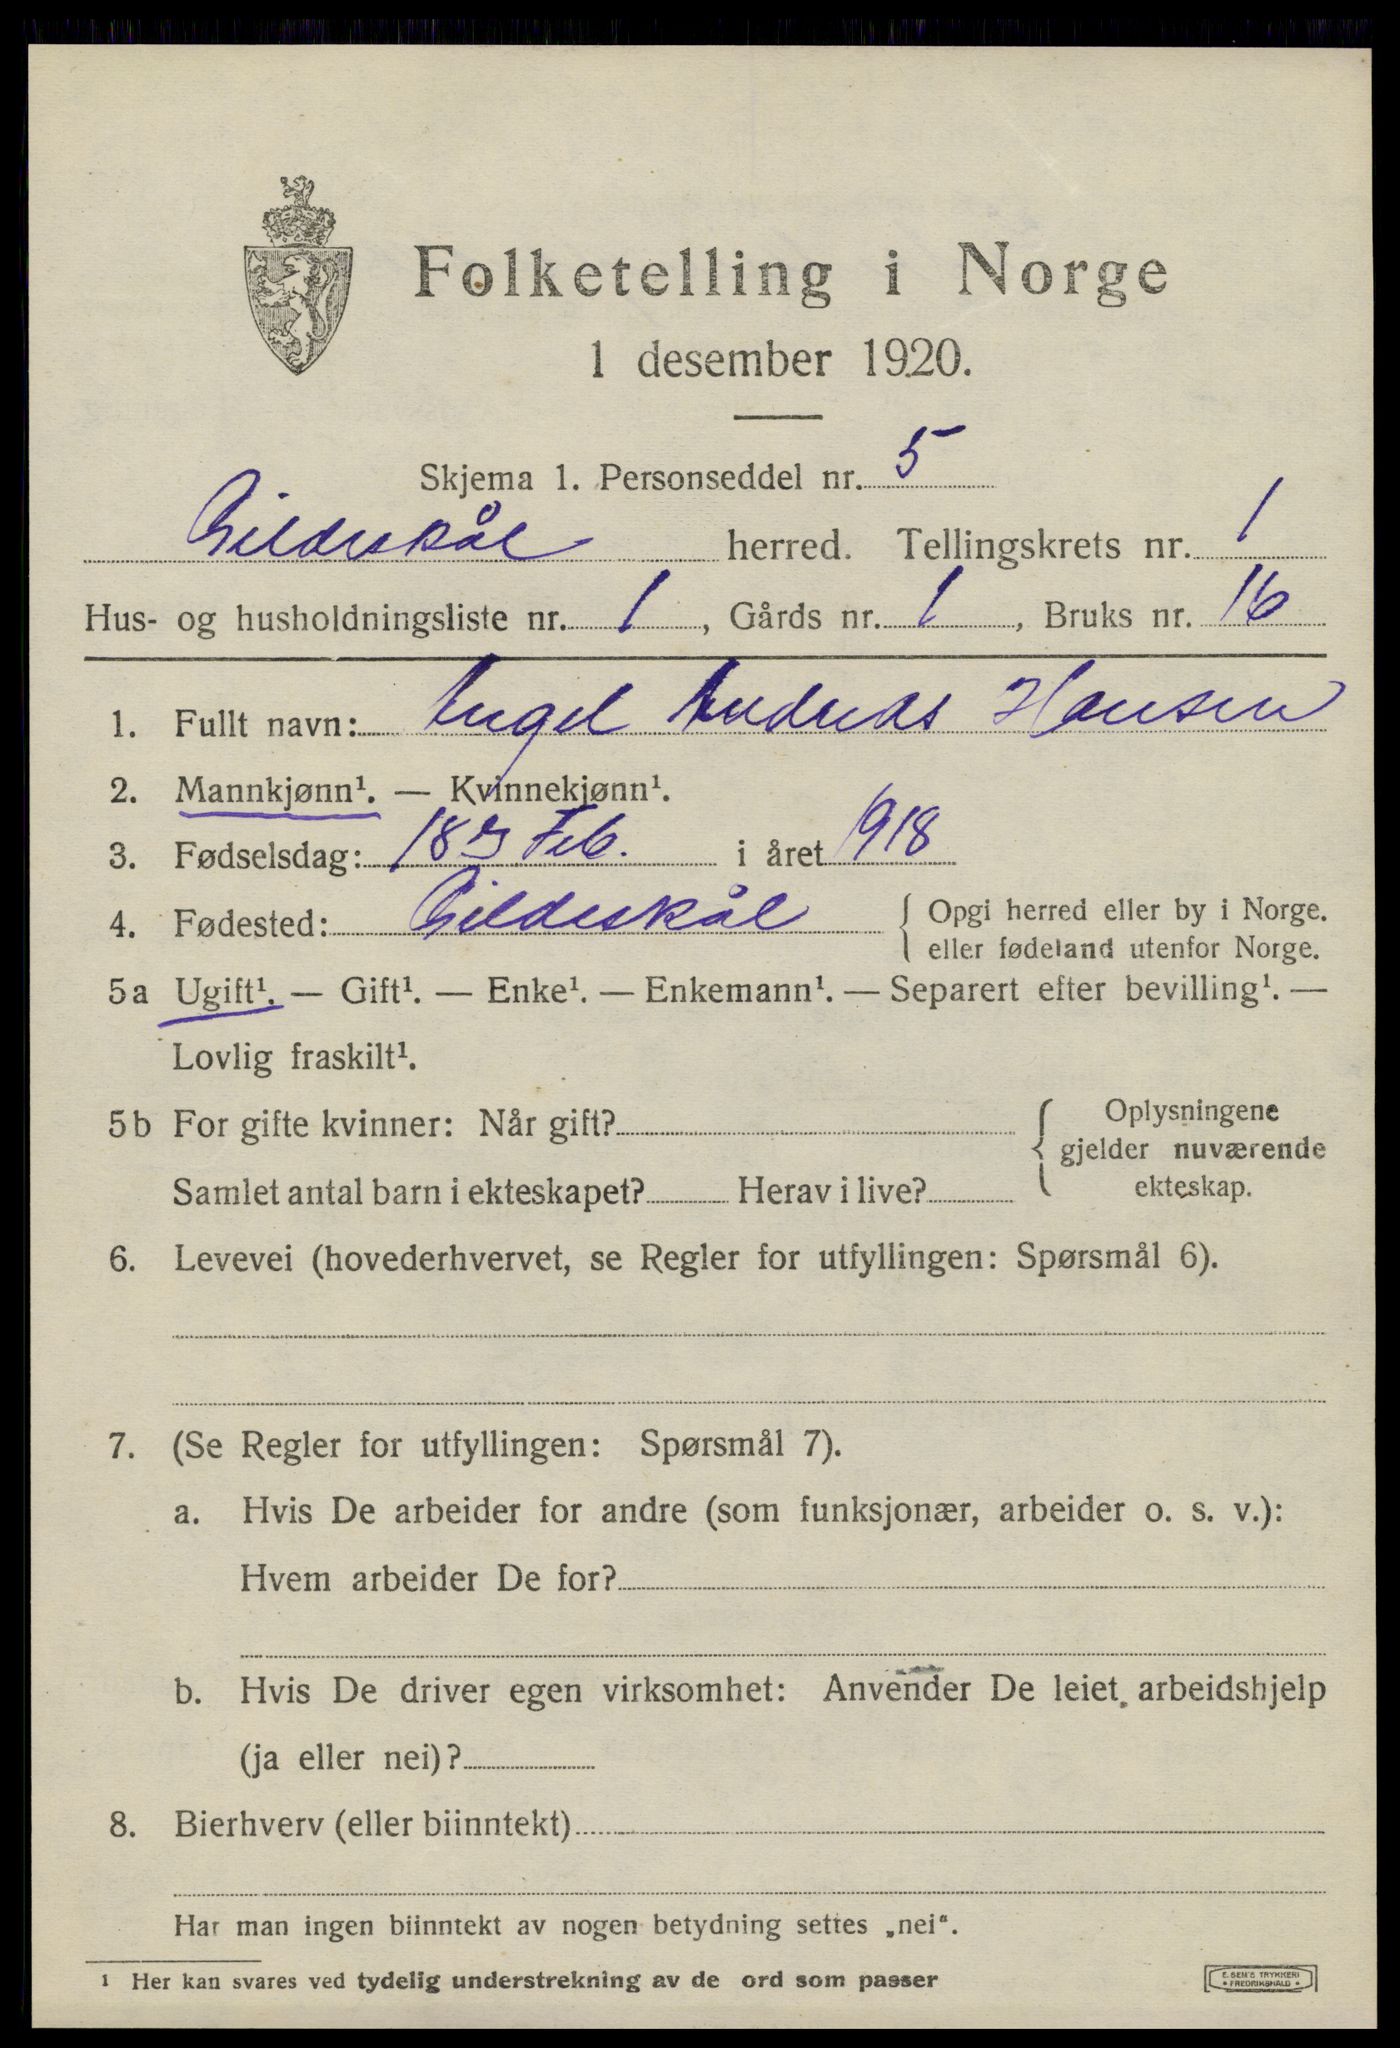 Folketelling i Norge
1 desember 1920.
Skjema 1. Personseddel nr. 5
Gildeskål herred. Tellingskrets nr. 1
Hus- og husholdningsliste nr. 1, Gårds nr. 1, Bruks nr. 16
1. Fullt navn: Angel Andreas Hansen
2. Mannkjønn¹. — Kvinnekjønn¹.
3. Fødselsdag: 18 Feb. i året 1918
4. Fødested: Gildeskål { Opgi herred eller by i Norge.
eller fødeland utenfor Norge.
5a Ugift¹. — Gift¹. — Enke¹. — Enkemann¹. — Separert efter bevilling¹. —
Lovlig fraskilt¹.
5b For gifte kvinner: Når gift? { Oplysningene
gjelder nuværende
Samlet antal barn i ekteskapet? Herav i live? ekteskap.
6. Levevei (hovederhvervet, se Regler for utfyllingen: Spørsmål 6).
7. (Se Regler for utfyllingen: Spørsmål 7).
a. Hvis De arbeider for andre (som funksjonær, arbeider o. s. v.):
Hvem arbeider De for?
b. Hvis De driver egen virksomhet: Anvender De leiet arbeidshjelp
(ja eller nei)?
8. Bierhverv (eller biinntekt)
Har man ingen biinntekt av nogen betydning settes „nei“.
1 Her kan svares ved tydelig understrekning av de ord som passer
E. SEM'S TRYKKERI
• FREDRIKSHALD •